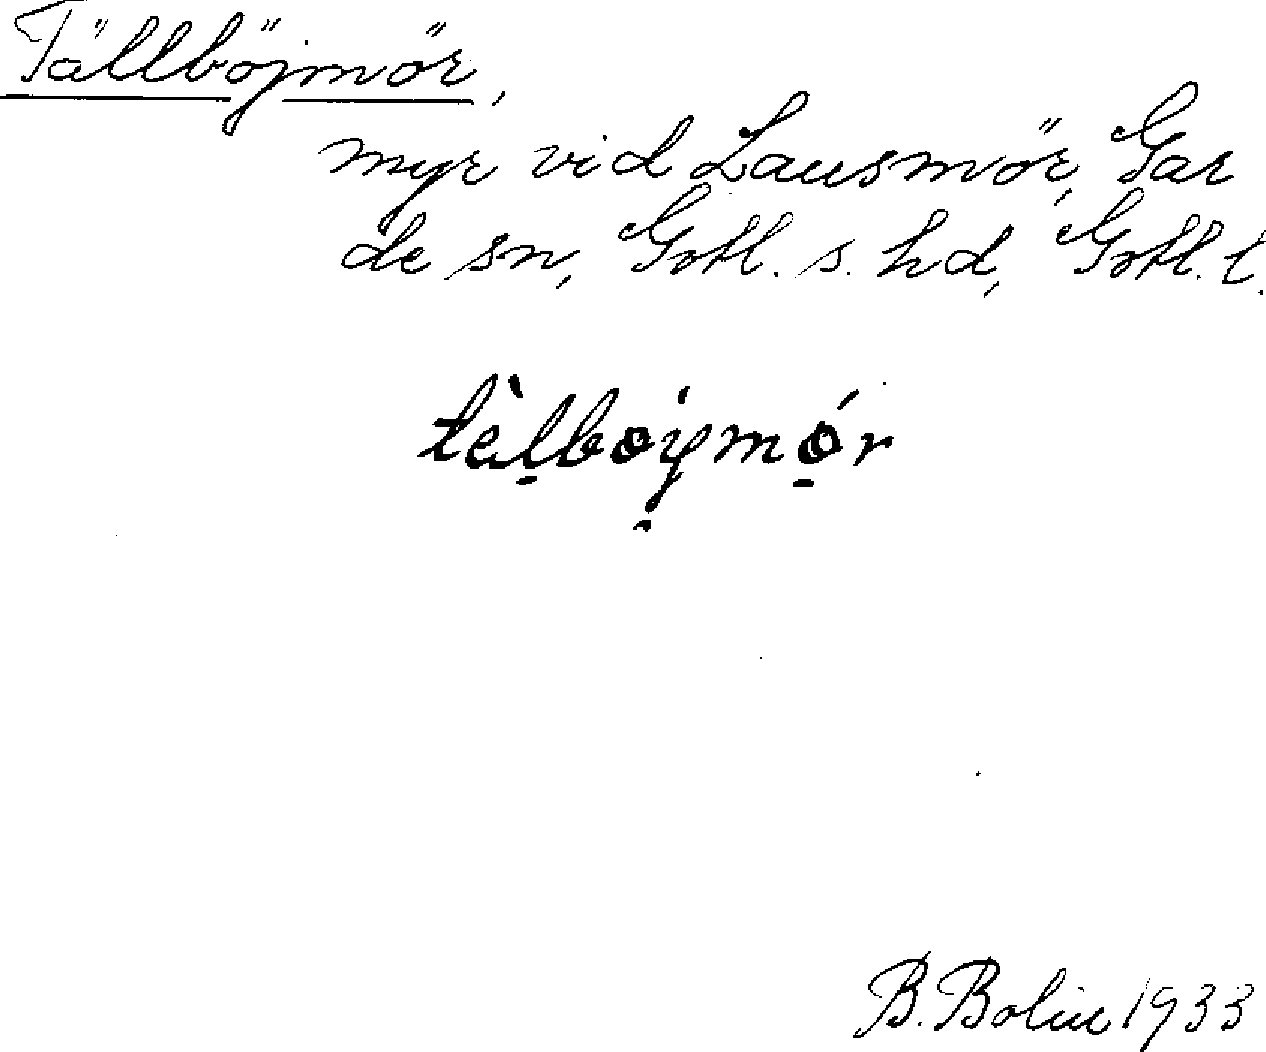 Tällböjmör,
myr vid Lausmör, Gar
de sn, Gotl. s. hd, Gotl. l.
tèlboymór
B. Bolin 1933